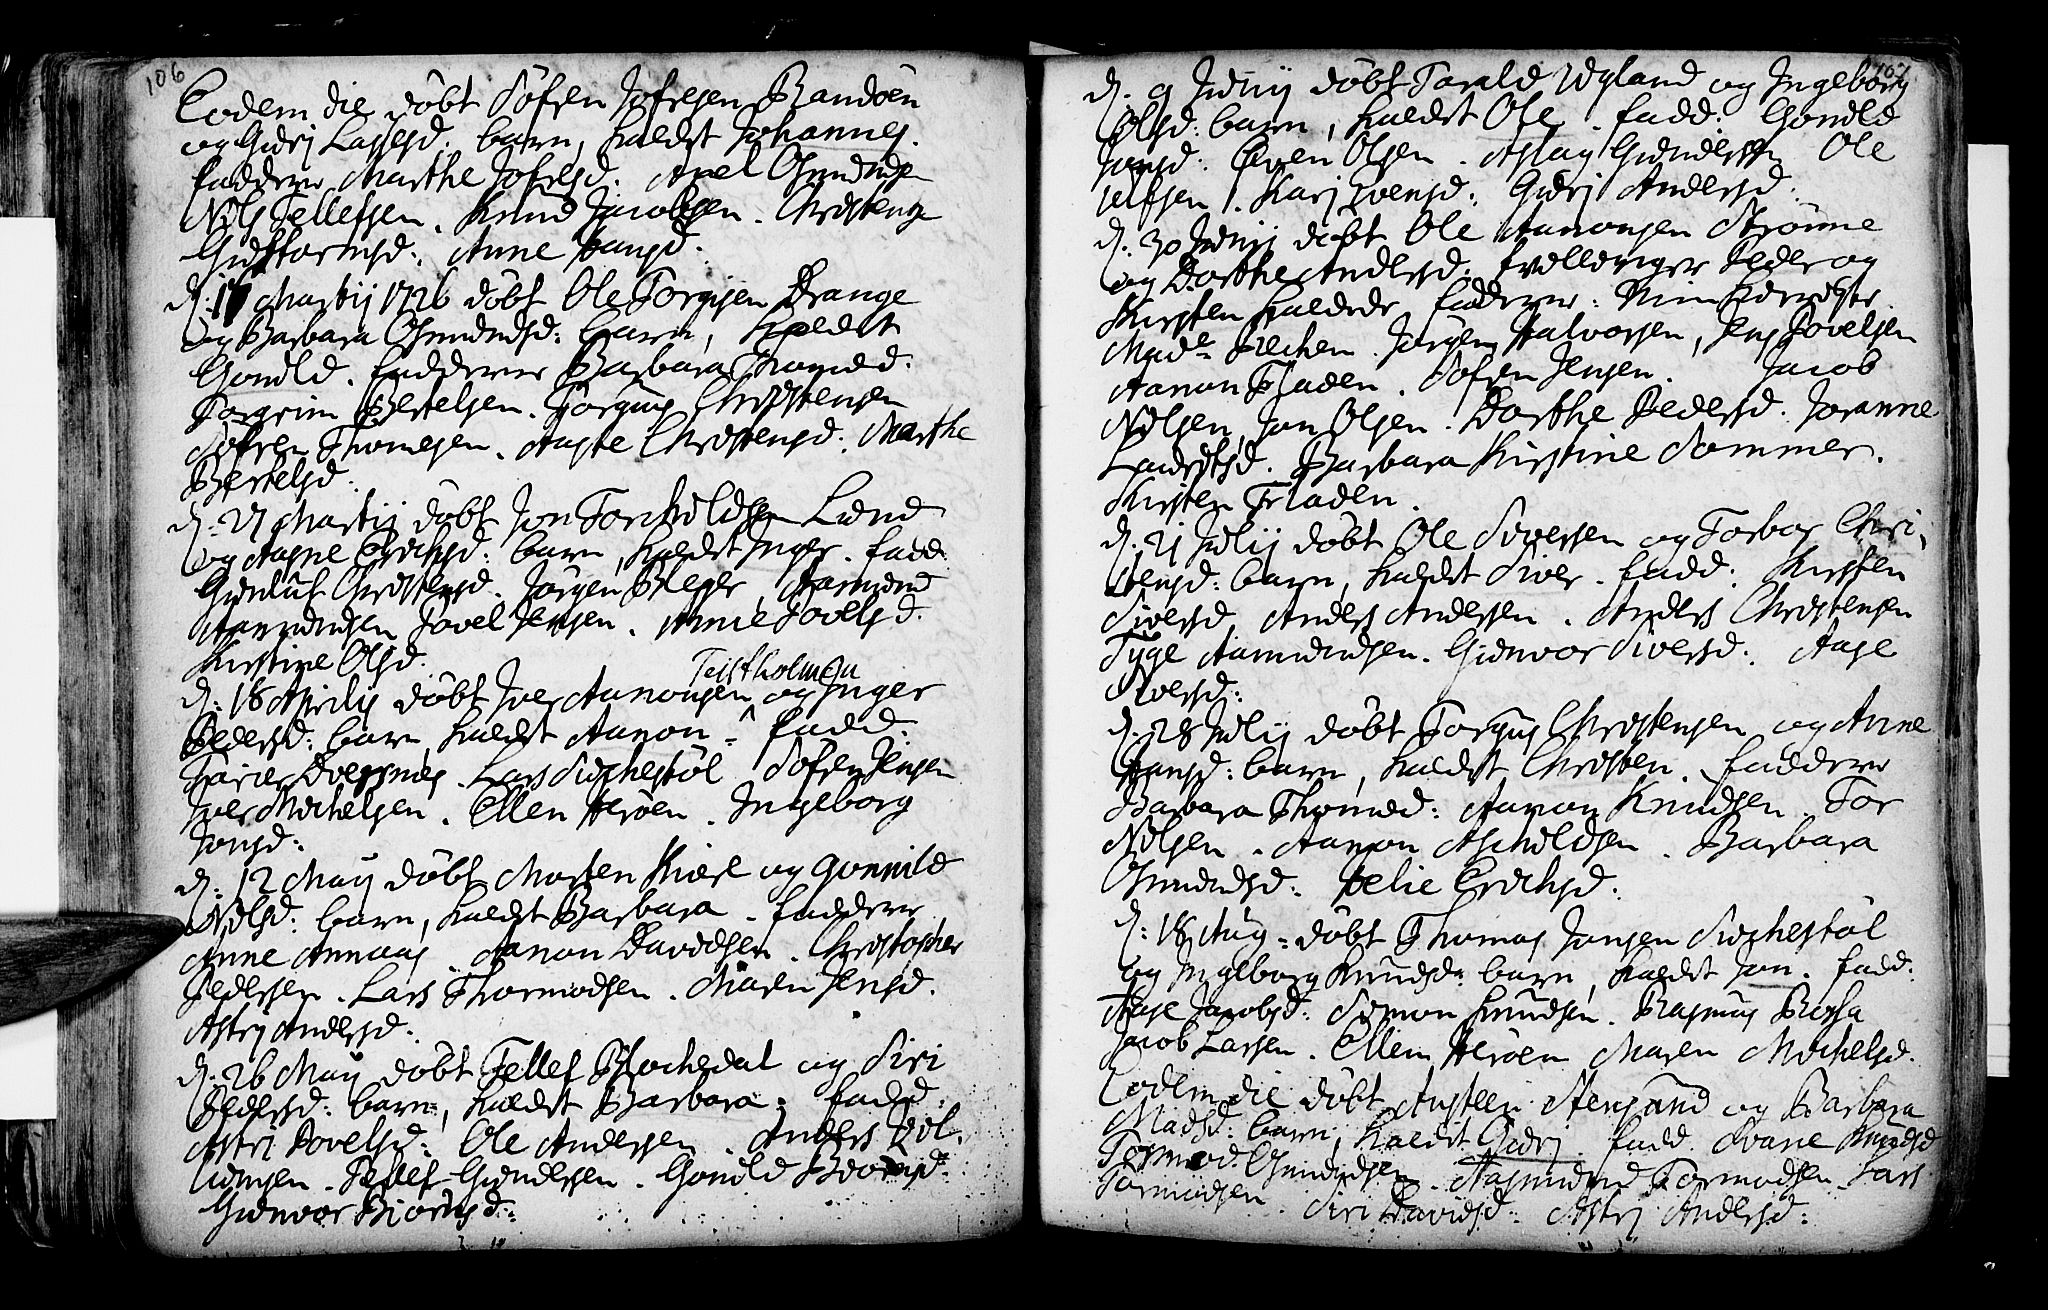 106
Eodem die döbt Söfren Jofrejsen Randöen
og Gurj Lassesd: barn, kaldet Johannes.
fadderne Marthe Jofrejsd. Axel Osmunds
Nils Tellefsen. Knud Jacobsen. Christence
Guttormsd:. Anne Hansd:
d: 17 Martij 1726 döbt Ole Torgjsen Drange
og Barbara Osmundsd: barn, kaldet
Gonild. fadderne Barbara Thomæd:
Torgrim Bertelsen. Torgius Christensen
Söfren Thomesen. Aaste Christensd: Marthe
Bertelsd:
d: 27 Martij döbt Jon Torkildsen Lund
og Aasne Erichsd: barn, kaldet Inger. fadd:
Gunluf Christensd. Jörgen Aamund
Aamundsen Povel Jensen. Anne Povelsd.
Kirstine Olsd.
Teistholmen
d: 18 Aprilis döbt Iver Aanonsen og Inger
Pedersd: barn kaldet Aanon fadd:
Dvergsnes. Lars Kirchestöl Söfren Jensen
Iver Michelsen. Ellen Heröen. Ingeborg
Jonsd:
d: 12 Maij döbt Morten Kiær og Gonnild
Nilsd: barn, kaldet Barbara. fadderne
Anne Annaas. Aanon Davidsen. Christopher
Pedersen. Lars Thormodsen. Maren Jensd.
Astrj Andersd:
d: 26 Maij döbt Tellef Blochedal og Siri
Pedersd: barn, kaldet Barbara. fadd:
Astri Povelsd: Ole Andersen Anders
Tellef Gundersen. Gonild Biörnsd:
Gunvor Biörnsd:
107
d. 9 Junij döbt Tarald Ugland og Ingeborg
Olsd: barn, kaldet Ole. fadd: Gonild
Jonsd: Even Olsen. Aslag Gundersen Ole
Kari Svensd: Gurj Andersd:
d. 30 Junij döbt Ole Aanonsen Strömme
og Dorthe Andersd: tvillinger Peder og
Kirsten kaldede fadderne: Min Hustroe
Made Jörgen Halvorsen, Jens Povelsen
Aanon Fladen. Söfren Jensen. Jacob
Nilsen, Jon Olsen. Dorthe Pedersd. Johanne
Lauritsd. Barbara Kirstine Sommer.
Kirsten Fladen.
d. 21 Julij döbt Ole Siversen og Torbor Chri-
stensd: barn, kaldet Siver. fadd: Kirsten
Siversd Anders Andersen. Anders Christensen
Tyge Aamundsen. Gunvor Siversd: Aase
Siversd:
d. 28 Julij döbt Torgius Christensen og Anne
Hansd: barn, kaldet Christen. fadderne
Barbara Thomæd: Aanon Knudsen. Tor
Nilsen. Aanon Askildsen. Barbara
Osmundsd: Helie Erichsd:
d: 18 Aug: döbt Thomas Jonsen Kirchestöl
og Ingeborg Knudsd: barn, kaldet Jon. fadd:
Aase Jacobsd: Simon Knudsen. Rasmus
Jacob Lassen. Ellen Heröen Maren Michelsd.
Eodem die döbt Austeen Stensund og Barbara
Madsd: barn, kaldet Gurj. fadd Svane Knudsd
Tormod Osmundsen. Aasmund Tormodsen Lars
Tormodsen. Siri Davidsd. Astrj Andersd: